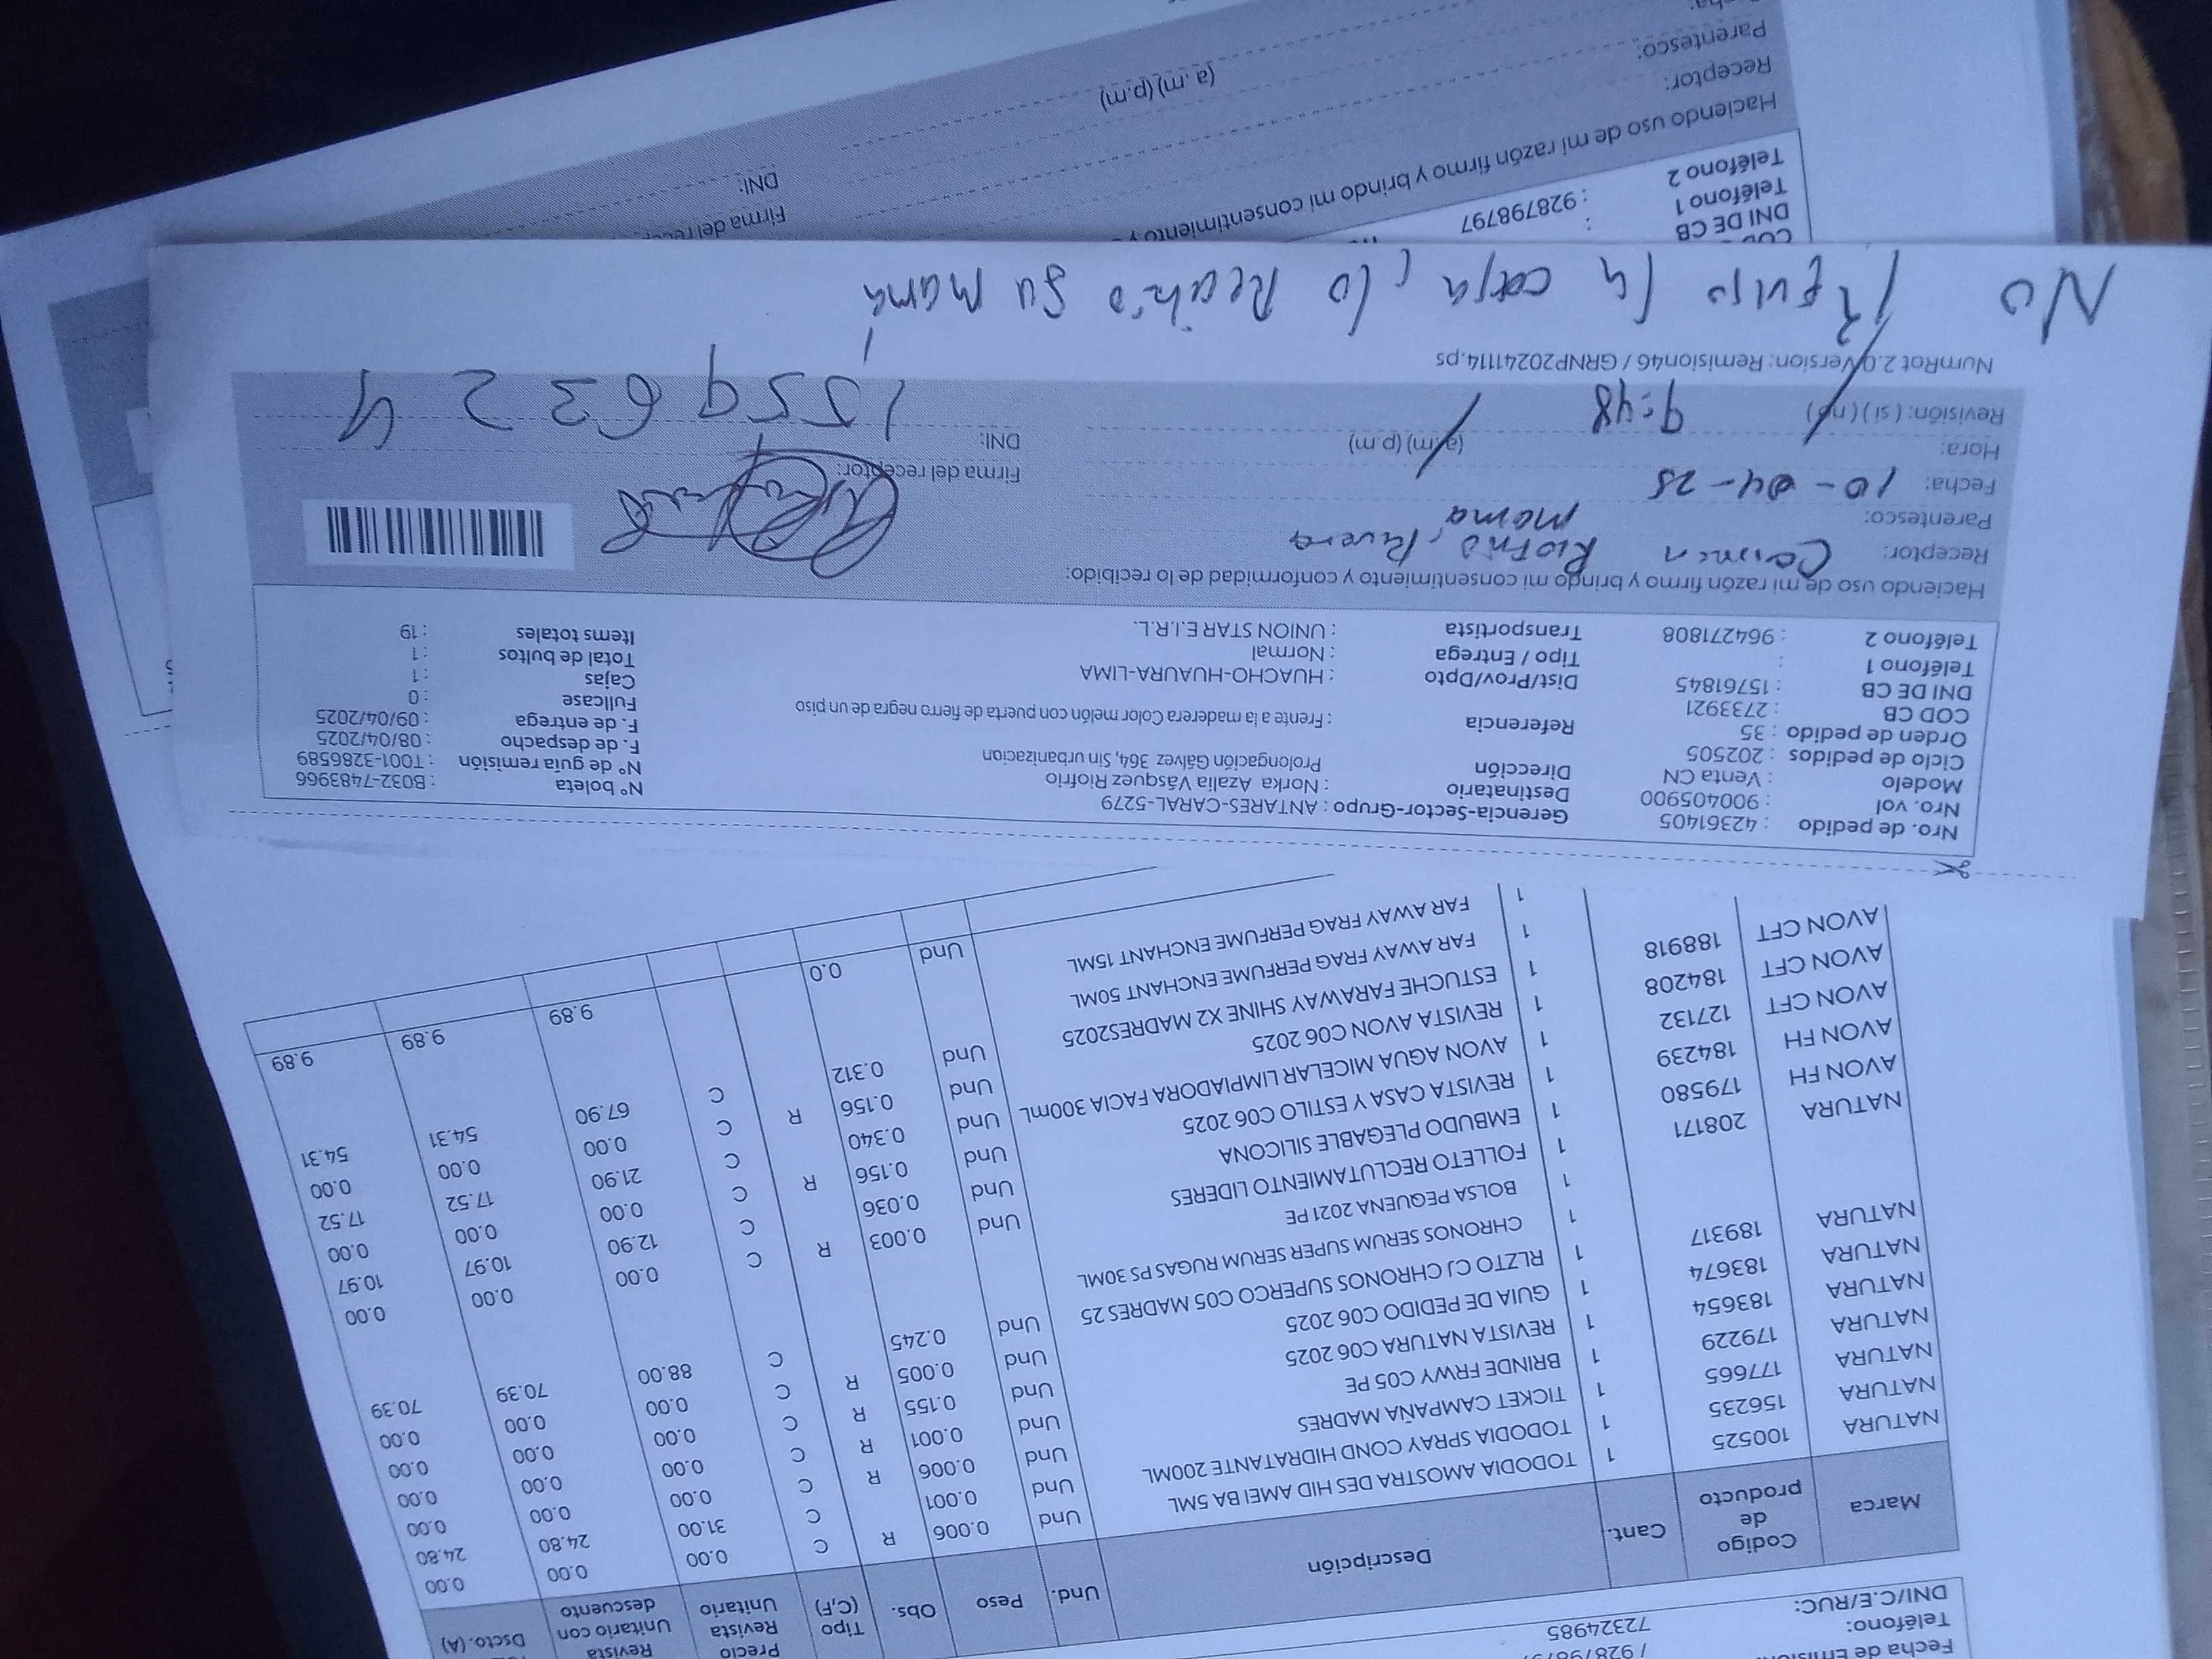 Fecha de Emisión
Teléfono: / 9287987
DNI/C.E/RUC: 72324985
Marca Codigo de producto Cant. Descripción Und. Peso Obs. Tipo (C,F) Precio Revista Unitario Revista Unitario con descuento Dscto. (A)
NATURA 100525 1 TODODIA AMOSTRA DES HID AMEI BA 5ML Und 0.006 R C 0.00 0.00 0.00
NATURA 156235 1 TODODIA SPRAY COND HIDRATANTE 200ML Und 0.001 C 31.00 24.80 24.80
NATURA 177665 1 TICKET CAMPAÑA MADRES Und 0.006 R C 0.00 0.00 0.00
NATURA 179229 1 BRINDE FRWY C05 PE Und 0.001 R C 0.00 0.00 0.00
NATURA 183654 1 REVISTA NATURA C06 2025 Und 0.155 R C 0.00 0.00 0.00
NATURA 183674 1 GUIA DE PEDIDO C06 2025 Und 0.005 R C 0.00 0.00 0.00
NATURA 189317 1 RLZTO CJ CHRONOS SUPERCO C05 MADRES 25 Und 0.245 C 88.00 70.39 70.39
1 CHRONOS SERUM SUPER SERUM RUGAS PS 30ML
1 BOLSA PEQUENA 2021 PE
NATURA 208171 1 FOLLETO RECLUTAMIENTO LIDERES Und 0.003 R C 0.00 0.00 0.00
AVON FH 179580 1 EMBUDO PLEGABLE SILICONA Und 0.036 C 12.90 10.97 10.97
AVON FH 184239 1 REVISTA CASA Y ESTILO C06 2025 Und 0.156 R C 0.00 0.00 0.00
AVON CFT 127132 1 AVON AGUA MICELAR LIMPIADORA FACIA 300mL Und 0.340 C 21.90 17.52 17.52
AVON CFT 184208 1 REVISTA AVON C06 2025 Und 0.156 R C 0.00 0.00 0.00
AVON CFT 188918 1 ESTUCHE FARAWAY SHINE X2 MADRES2025 Und 0.312 C 67.90 54.31 54.31
1 FAR AWAY FRAG PERFUME ENCHANT 50ML
1 FAR AWAY FRAG PERFUME ENCHANT 15ML Und 0.0 9.89 9.89 9.89
Nro. de pedido : 42361405 Gerencia-Sector-Grupo : ANTARES-CARAL-5279 N° boleta : B032-7483966
Nro. vol : 900405900 Destinatario : Norka Azalia Vásquez Riofrio N° de guía remisión : T001-3286589
Modelo : Venta CN Dirección Prolongación Gálvez 364, Sin urbanizacion F. de despacho : 08/04/2025
Ciclo de pedidos : 202505 F. de entrega : 09/04/2025
Orden de pedido : 35 Referencia : Frente a la maderera Color melón con puerta de fierro negra de un piso Fullcase : 0
COD CB : 2733921 Cajas : 1
DNI DE CB : 15761845 Dist/Prov/Dpto : HUACHO-HUAURA-LIMA Total de bultos : 1
Teléfono 1 : Tipo / Entrega : Normal Items totales : 19
Teléfono 2 : 964271808 Transportista : UNION STAR E.I.R.L.
Haciendo uso de mi razón firmo y brindo mi consentimiento y conformidad de lo recibido:
Receptor: Carmen Riofrio, Rivera
Parentesco: mama
Fecha: 10-04-25 Firma del receptor:
Hora: 9:48 (a.m) (p.m) DNI: 15596324
Revisión: ( si ) ( no )
NumRot 2.0 Version: Remision46 / GRNP20241114.ps
No Reviso la caja, lo Recibio su mamá
COD
DNI DE CB :
Teléfono 1 : 928798797
Teléfono 2
Haciendo uso de mi razón firmo y brindo mi consentimiento y
Receptor:
Parentesco: Firma del rece
Fecha: DNI:
(a.m) (p.m)